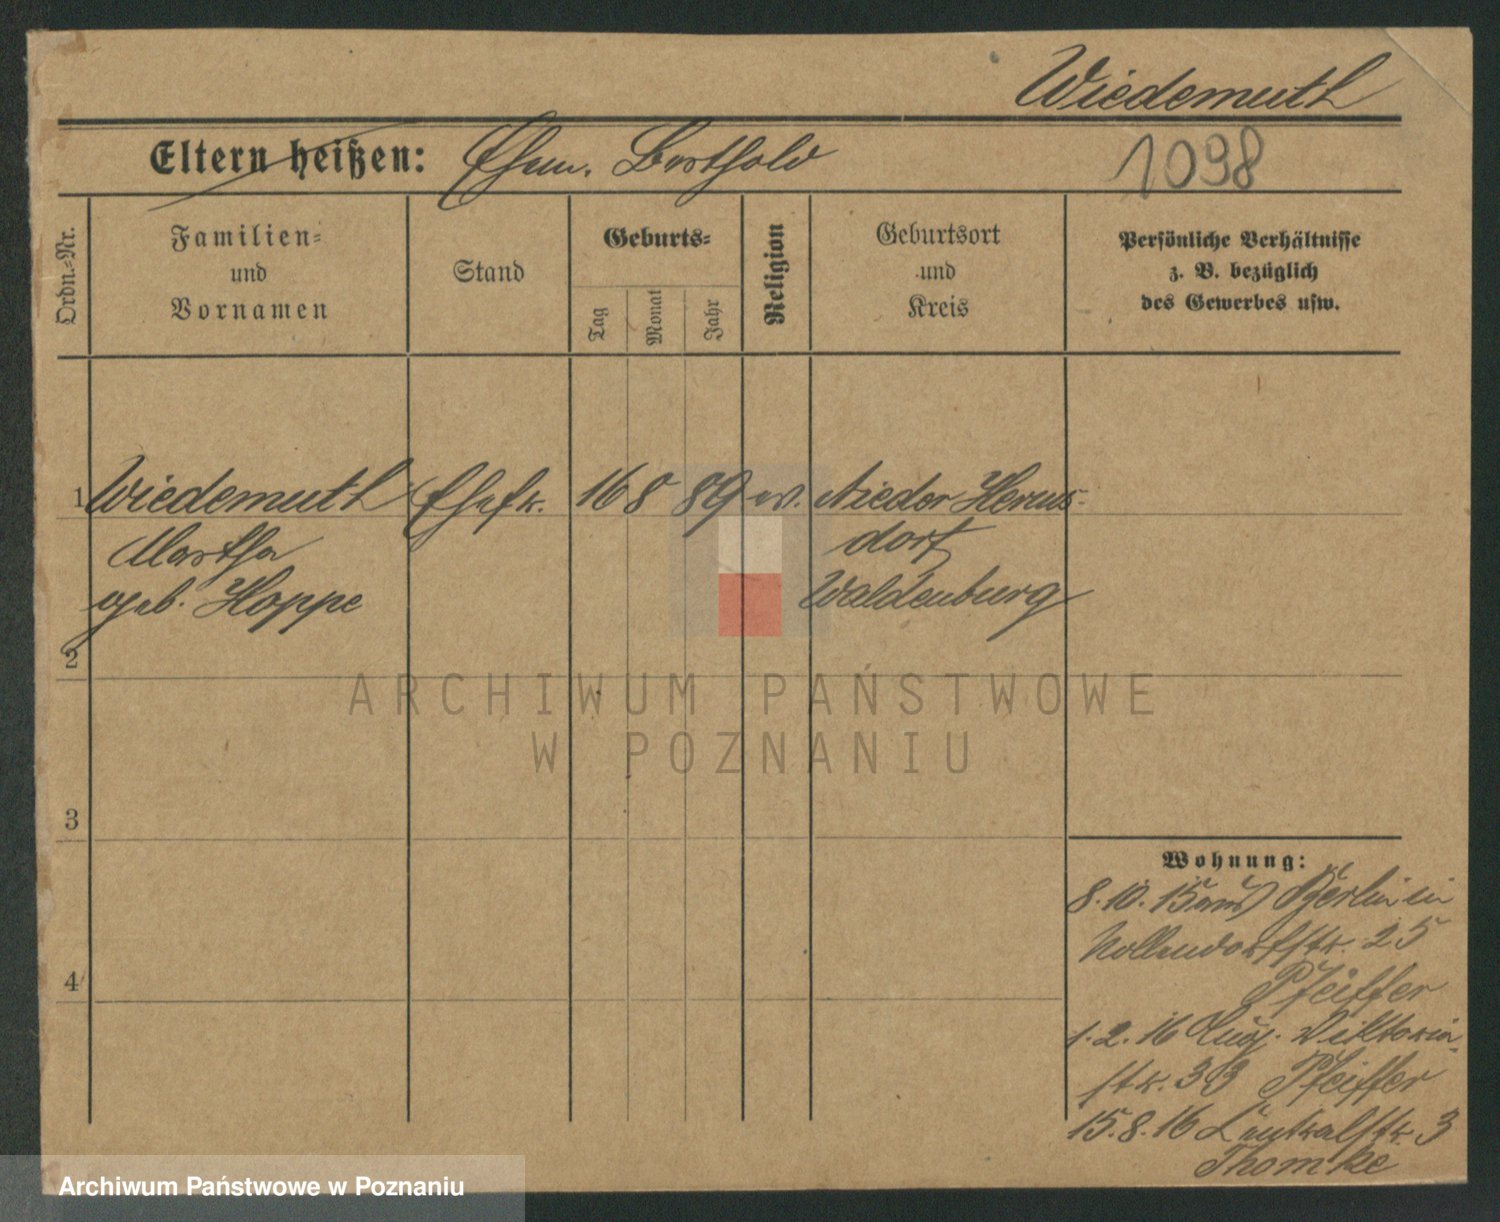 Wiedemuth
Eltern heißen: Ehem. Berthold
1098
Ordn.-Nr.
Familien-
und
Vornamen
Stand
Geburts-
Tag
Monat
Jahr
Religion
Geburtsort
und
Kreis
Persönliche Verhältnisse
z. B. bezüglich
des Gewerbes usw.
1 Wiedemuth Ehefr. 16 8 89 ev. Nieder Herms-
Martha dorf
geb. Hoppe Waldenburg
2
3
4
Wohnung:
8.10.15 aus Berlin in
Nollendorfstr. 25
Pfeiffer
1.2.16 Aug. Viktoria-
str. 33 Pfeiffer
15.8.16 Luutralstr. 3
Thomke
ARCHIWUM PAŃSTWOWE
W POZNANIU
Archiwum Państwowe w Poznaniu